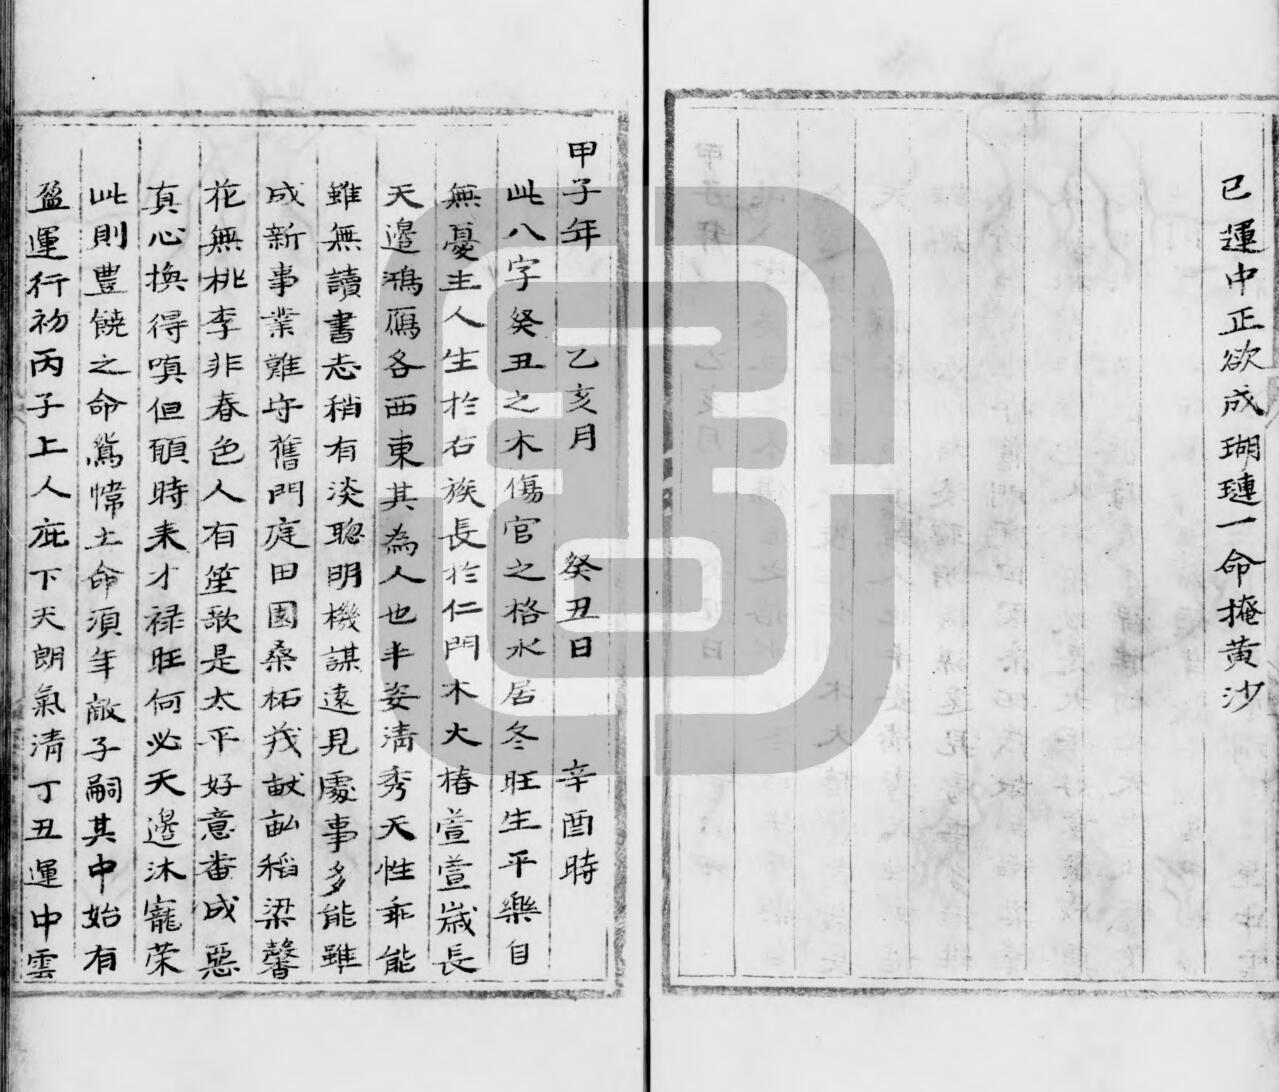 已運中正欲成瑚璉一命掩黄沙
甲子年 乙亥月 癸丑日 辛酉時
此八字癸丑之木傷官之格水居冬旺生平樂自
無憂生人生於右族長於仁門木大椿萱萱嵗長
天邉鴻鴈各西東其為人也半姿清秀天性乖能
雖無讀書志稍有淡聰明機謀遠見處事多能雖
成新事業難守舊門庭田園桑柘茂畝畆稻梁馨
花無桃李非春色人有笙歌是太平好意畨成惡
真心換得嗔但願時来才禄旺何必天邉沐寵荣
此則豊饒之命鴛幃土命須年敵子嗣其中始有
盈運行初丙子上人庇下天朗氣清丁丑運中雲